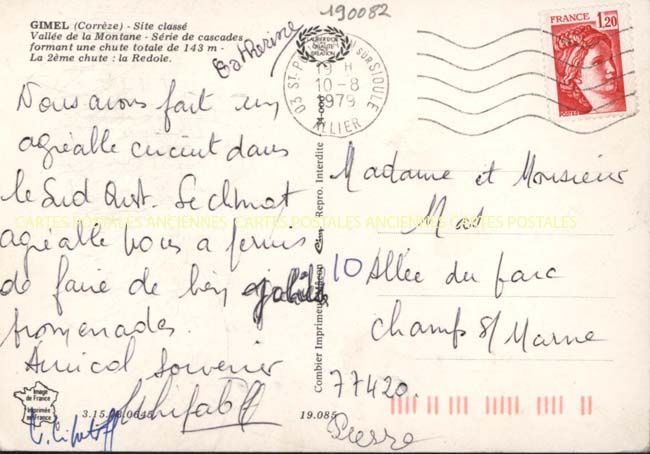 GIMEL (Corrèze) - Site classé
Vallée de la Montane - Série de cascades
formant une chute totale de 143 m -
La 2ème chute : la Redole.
Catherine
190082
FRANCE 1,20
POSTES
03 ST-P SUR SIOULE
19 H
10-8
1979
ALLIER
Nous avons fait un
agréable circuit dans
le Sud Ouest. Le climat
agréable nous a permis
de faire de bien jolies
promenades.
Amical souvenir
Madame et Monsieur
10 Allée du parc
Champs s/ Marne
77420.
Pierre
Combier Imprimeur Mâcon Repro. Interdite
CARTES POSTALES ANCIENNES CARTES POSTALES ANCIENNES CARTES POSTALES
Image
de France
Imprimée
en France
19.085